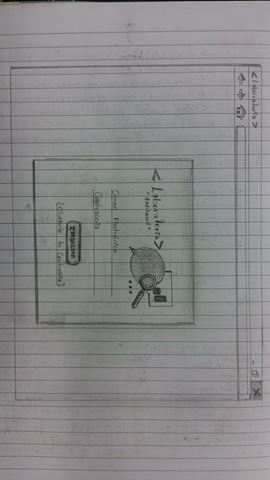 <Laboratoria>
<Laboratoria>
"dashboard"
Correo Electrónico
Contraseña
INGRESAR
¿Olvidaste tu Contraseña?